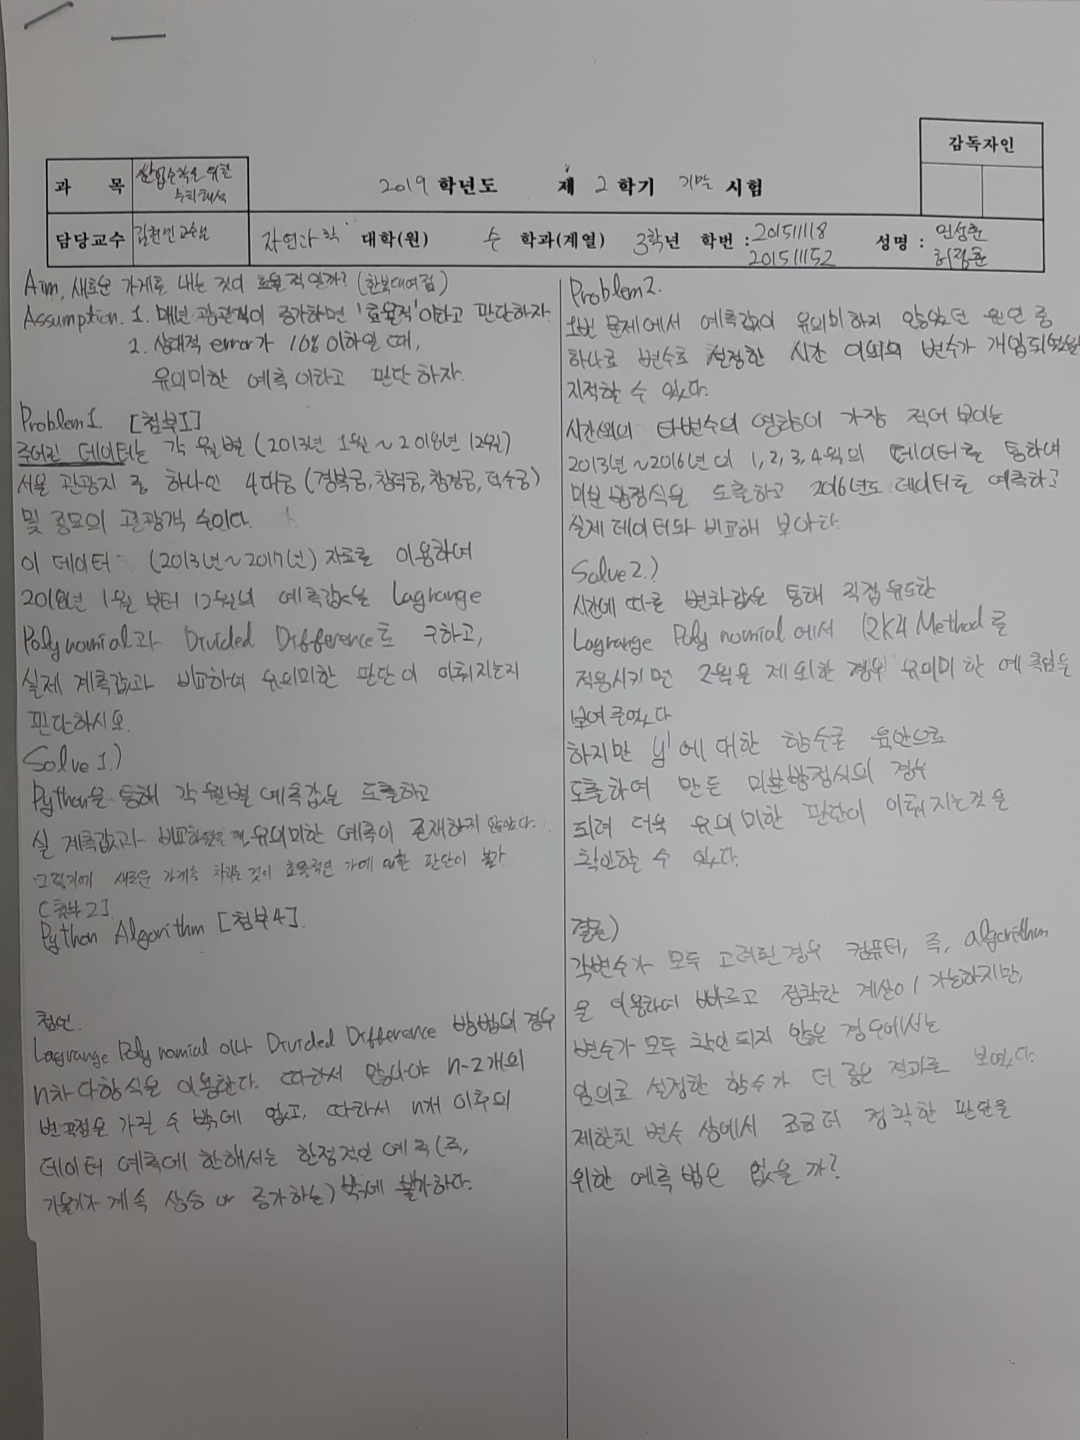 감독자인
과 목 산업수학을 위한
수치해석
2019 학년도 제 2 학기 기말 시험
담당교수 김현민 교수님 자연과학 대학(원) 수 학과(계열) 3학년 학번 : 201511118 성명 :
201511152 허정훈
Aim, 새로운 가게를 내는 것이 효율적일까? (한복대여점)
Assumption. 1. 매년 관광객이 증가하면 '효율적'이라고 판단하자.
2. 상대적 error가 10% 이하일 때,
유의미한 예측이라고 판단하자.
Problem1. [첨부1]
주어진 데이터는 각 월별 (2013년 1월 ~ 2018년 12월)
서울 관광지 중 하나인 4대궁 (경복궁, 창덕궁, 창경궁, 덕수궁)
및 종묘의 관광객 수이다.
이 데이터 (2013년 ~ 2017년) 자료를 이용하여
2018년 1월부터 12월의 예측값을 Lagrange
Polynomial과 Divided Difference로 구하고,
실제 계측값과 비교하여 유의미한 판단이 이뤄지는지
판단하시오.
Solve 1.)
Python을 통해 각 월별 예측값을 도출하고
실 계측값과 비교하였을 때 유의미한 예측이 존재하지 않았다.
그렇기에 새로운 가게를 차리는 것이 효율적인 가에 의한 판단이 불가
[첨부2]
Python Algorithm [첨부4].
첨언.
Lagrange Polynomial 이나 Divided Difference 방법의 경우
n차 다항식을 이용한다. 따라서 많아야 n-2개의
변곡점을 가질 수 밖에 없고, 따라서 n개 이후의
데이터 예측에 한해서는 한정적인 예측(즉,
기울기가 계속 상승 or 증가하는) 밖에 불가하다.
Problem2.
1번 문제에서 예측값이 유의미하지 않았던 원인 중
하나로 변수로 설정한 시간 이외의 변수가 개입되었음을
지적할 수 있다.
시간외의 타변수의 영향이 가장 적어 보이는
2013년~2016년의 1, 2, 3, 4월의 데이터를 통하여
미분 방정식을 도출하고 2016년도 데이터를 예측하고
실제 데이터와 비교해 보아라.
Solve 2.)
시간에 따른 변화값을 통해 직접 유도한
Lagrange Polynomial 에서 RK4 Method를
적용시키면 2월을 제외한 경우 유의미한 예측값을
보여 주었다
하지만 y'에 대한 함수를 육안으로
도출하여 만든 미분방정식의 경우
되려 더욱 유의미한 판단이 이뤄지는것을
확인할 수 있다.
결론)
각변수가 모두 고려된 경우 컴퓨터, 즉, algorithm
을 이용하여 빠르고 정확한 계산이 가능하지만,
변수가 모두 확인되지 않은 경우에서는
임의로 설정한 함수가 더 좋은 결과를 보였다.
제한된 변수 상에서 조금더 정확한 판단을
위한 예측법은 없을 까?